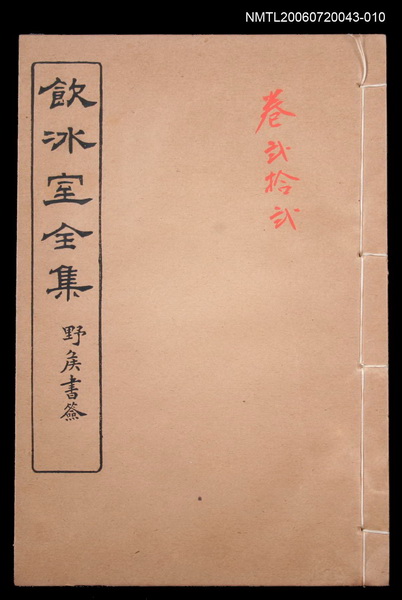 NMTL20060720043-010
卷弍拾弍
飲冰室全集
野侯書簽